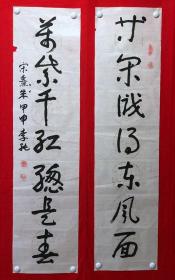 等闲识得东风面
萬紫千红總是春
宋熹朱甲申李